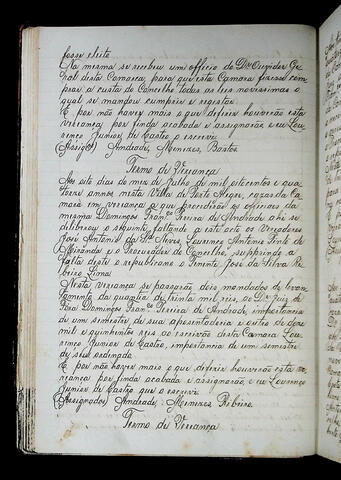 fosse eleito
Na mesma se recebeu um officio do Dr Ouvidor Ge
ral desta Comarca, para que esta Camara fizesse com
prar a custa do Concelho todas as leis novissimas o
qual se mandou cumprir e registar.
E por não haver mais o que diferir houverão esta
vereança por finda acabada e assignarão eu Lou
renço Junior de Castro o escrevi.
(Assigos) Andrade, Menezes, Bastos
Termo de Vereança
Aos oito dias do mez de Julho de mil oitocentos e qua
torze annos nesta Villa de Porto Alegre, cazas da Ca
mara em vereança a que presidirão os officiaes da
mesma Domingos Franco Pereira de Andrade ahi se
deliberou o seguinte, faltando a este acto os Vreadores
José Antonio da Sa Neves, Lourenço Antonio Pinto de
Miranda e o Procurador do Concelho, supprindo a
falta deste o republicano o Tenente José da Silva Ri
beiro Lima.
Nesta vereança se passarão dois mandados de levan
tamento da quantia de trinta mil reis, ao Dr Juiz de
Fóra Domingos Franco Pereira de Andrade, importancia
de um semestre, de sua aposentadoria e outro de doze
mil e quinhentos reis ao escrivão desta Camara Lou
renço Junior de Castro, importancia de um semestre
de seu ordenado.
E por não haver mais o que diferir houverão esta ve
reança por finda acabada e assignarão, e eu Lourenço
Junior de Castro que o escrevi.
(Assignados) Andrade, Menezes Ribeiro.
Termo de Vereança